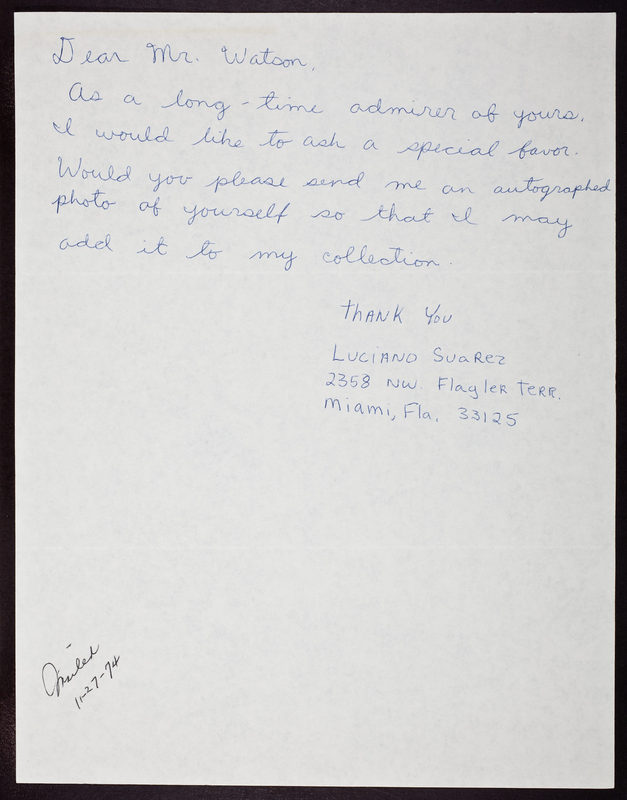 Dear Mr. Watson,
As a long-time admirer of yours,
I would like to ask a special favor.
Would you please send me an autographed
photo of yourself so that I may
add it to my collection.
Thank You
Luciano Suarez
2358 NW. Flagler Terr.
Miami, Fla. 33125
Mailed
11-27-74